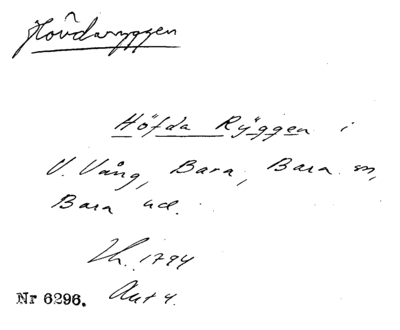 Hövdaryggen
Höfda Ryggen i
V. Vång, Bara, Bara sn,
Bara hd.
Lh. 1794
Akt 4.
Nr 6296.